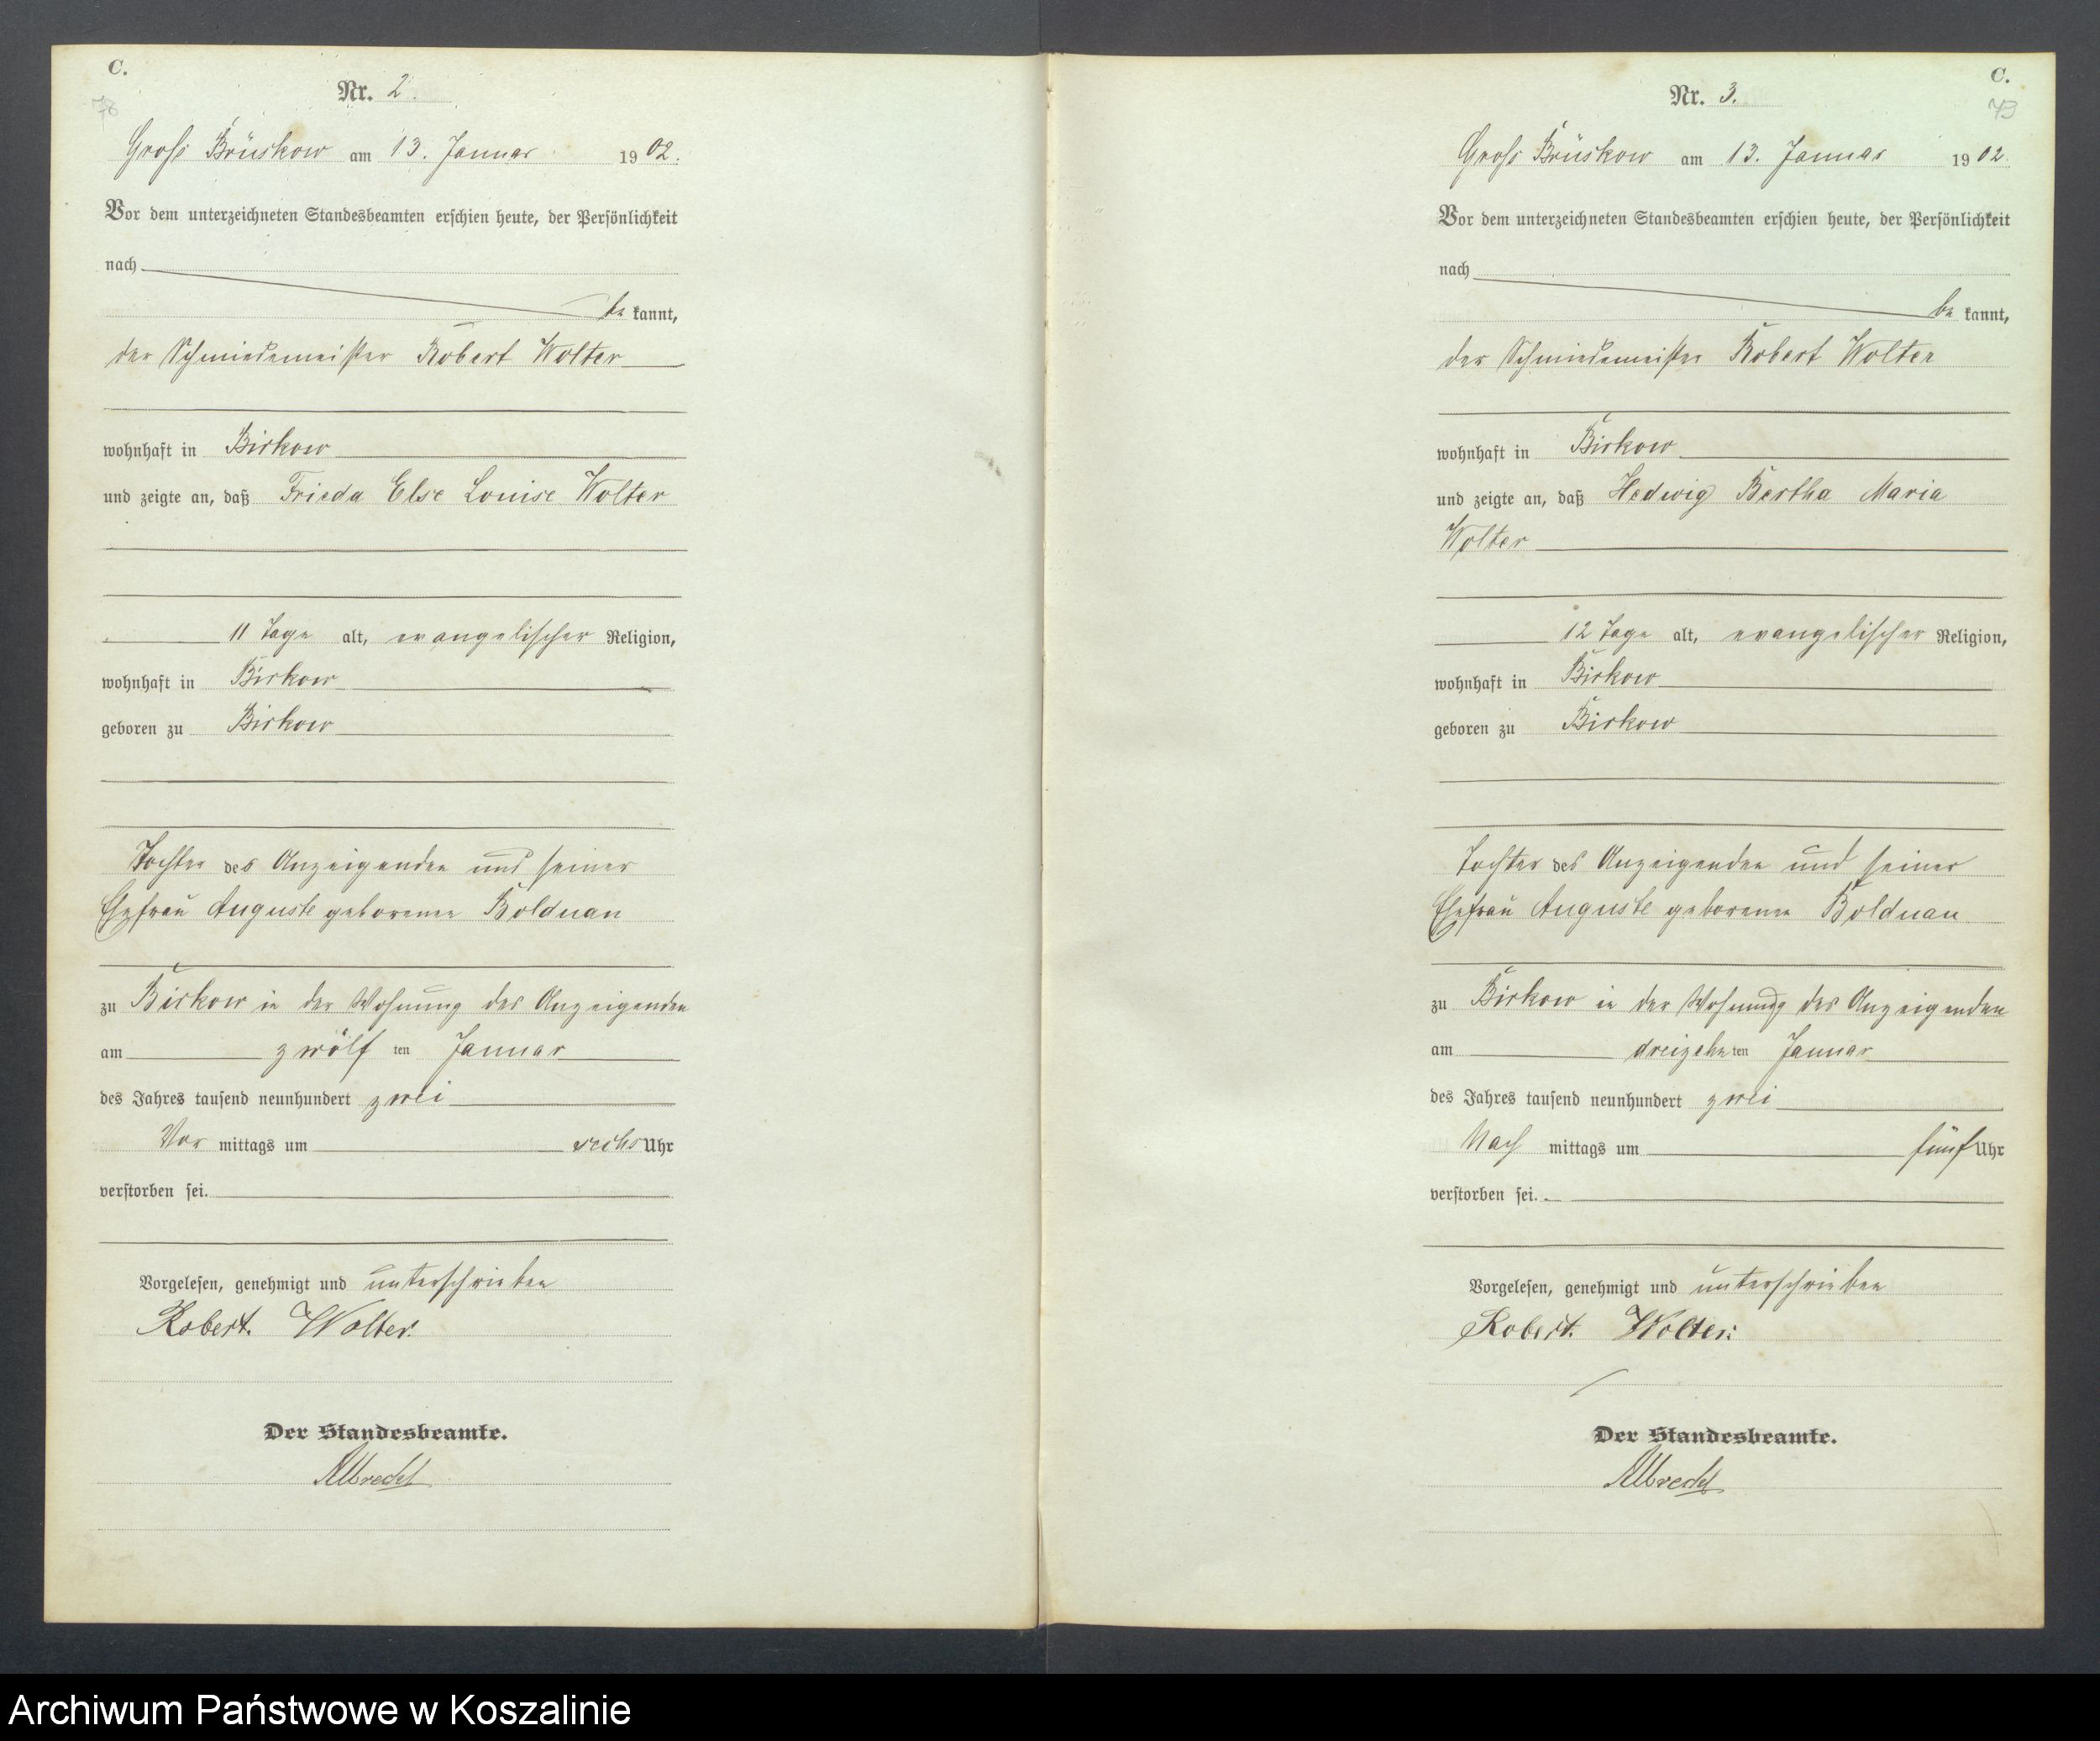 C.
78
Nr. 2.
Gross Brüskow am 13. Januar 1902.
Vor dem unterzeichneten Standesbeamten erschien heute, der Persönlichkeit
nach
be kannt,
der Schmiedemeister Robert Wolter
wohnhaft in Birkow
und zeigte an, daß Frieda Else Louise Wolter
11 Tage alt, evangelischer Religion,
wohnhaft in Birkow
geboren zu Birkow
Tochter des Anzeigenden und seiner
Ehefrau Auguste geborenen Bolduan
zu Birkow in der Wohnung des Anzeigenden
am zwölf ten Januar
des Jahres tausend neunhundert zwei
Vor mittags um sechs Uhr
verstorben sei.
Vorgelesen, genehmigt und unterschrieben
Robert. Wolter.
Der Standesbeamte.
Albrecht
C.
Nr. 3.
Gross Brüskow am 13. Januar 1902.
Vor dem unterzeichneten Standesbeamten erschien heute, der Persönlichkeit
nach
be kannt,
der Schmiedemeister Robert Wolter
wohnhaft in Birkow
und zeigte an, daß Hedwig Bertha Maria
Wolter
12 Tage alt, evangelischer Religion,
wohnhaft in Birkow
geboren zu Birkow
Tochter des Anzeigenden und seiner
Ehefrau Auguste geborenen Bolduan
zu Birkow in der Wohnung des Anzeigenden
am dreizehn ten Januar
des Jahres tausend neunhundert zwei
Nach mittags um fünf Uhr
verstorben sei.
Vorgelesen, genehmigt und unterschrieben
Robert. Wolter.
Der Standesbeamte.
Albrecht
Archiwum Państwowe w Koszalinie